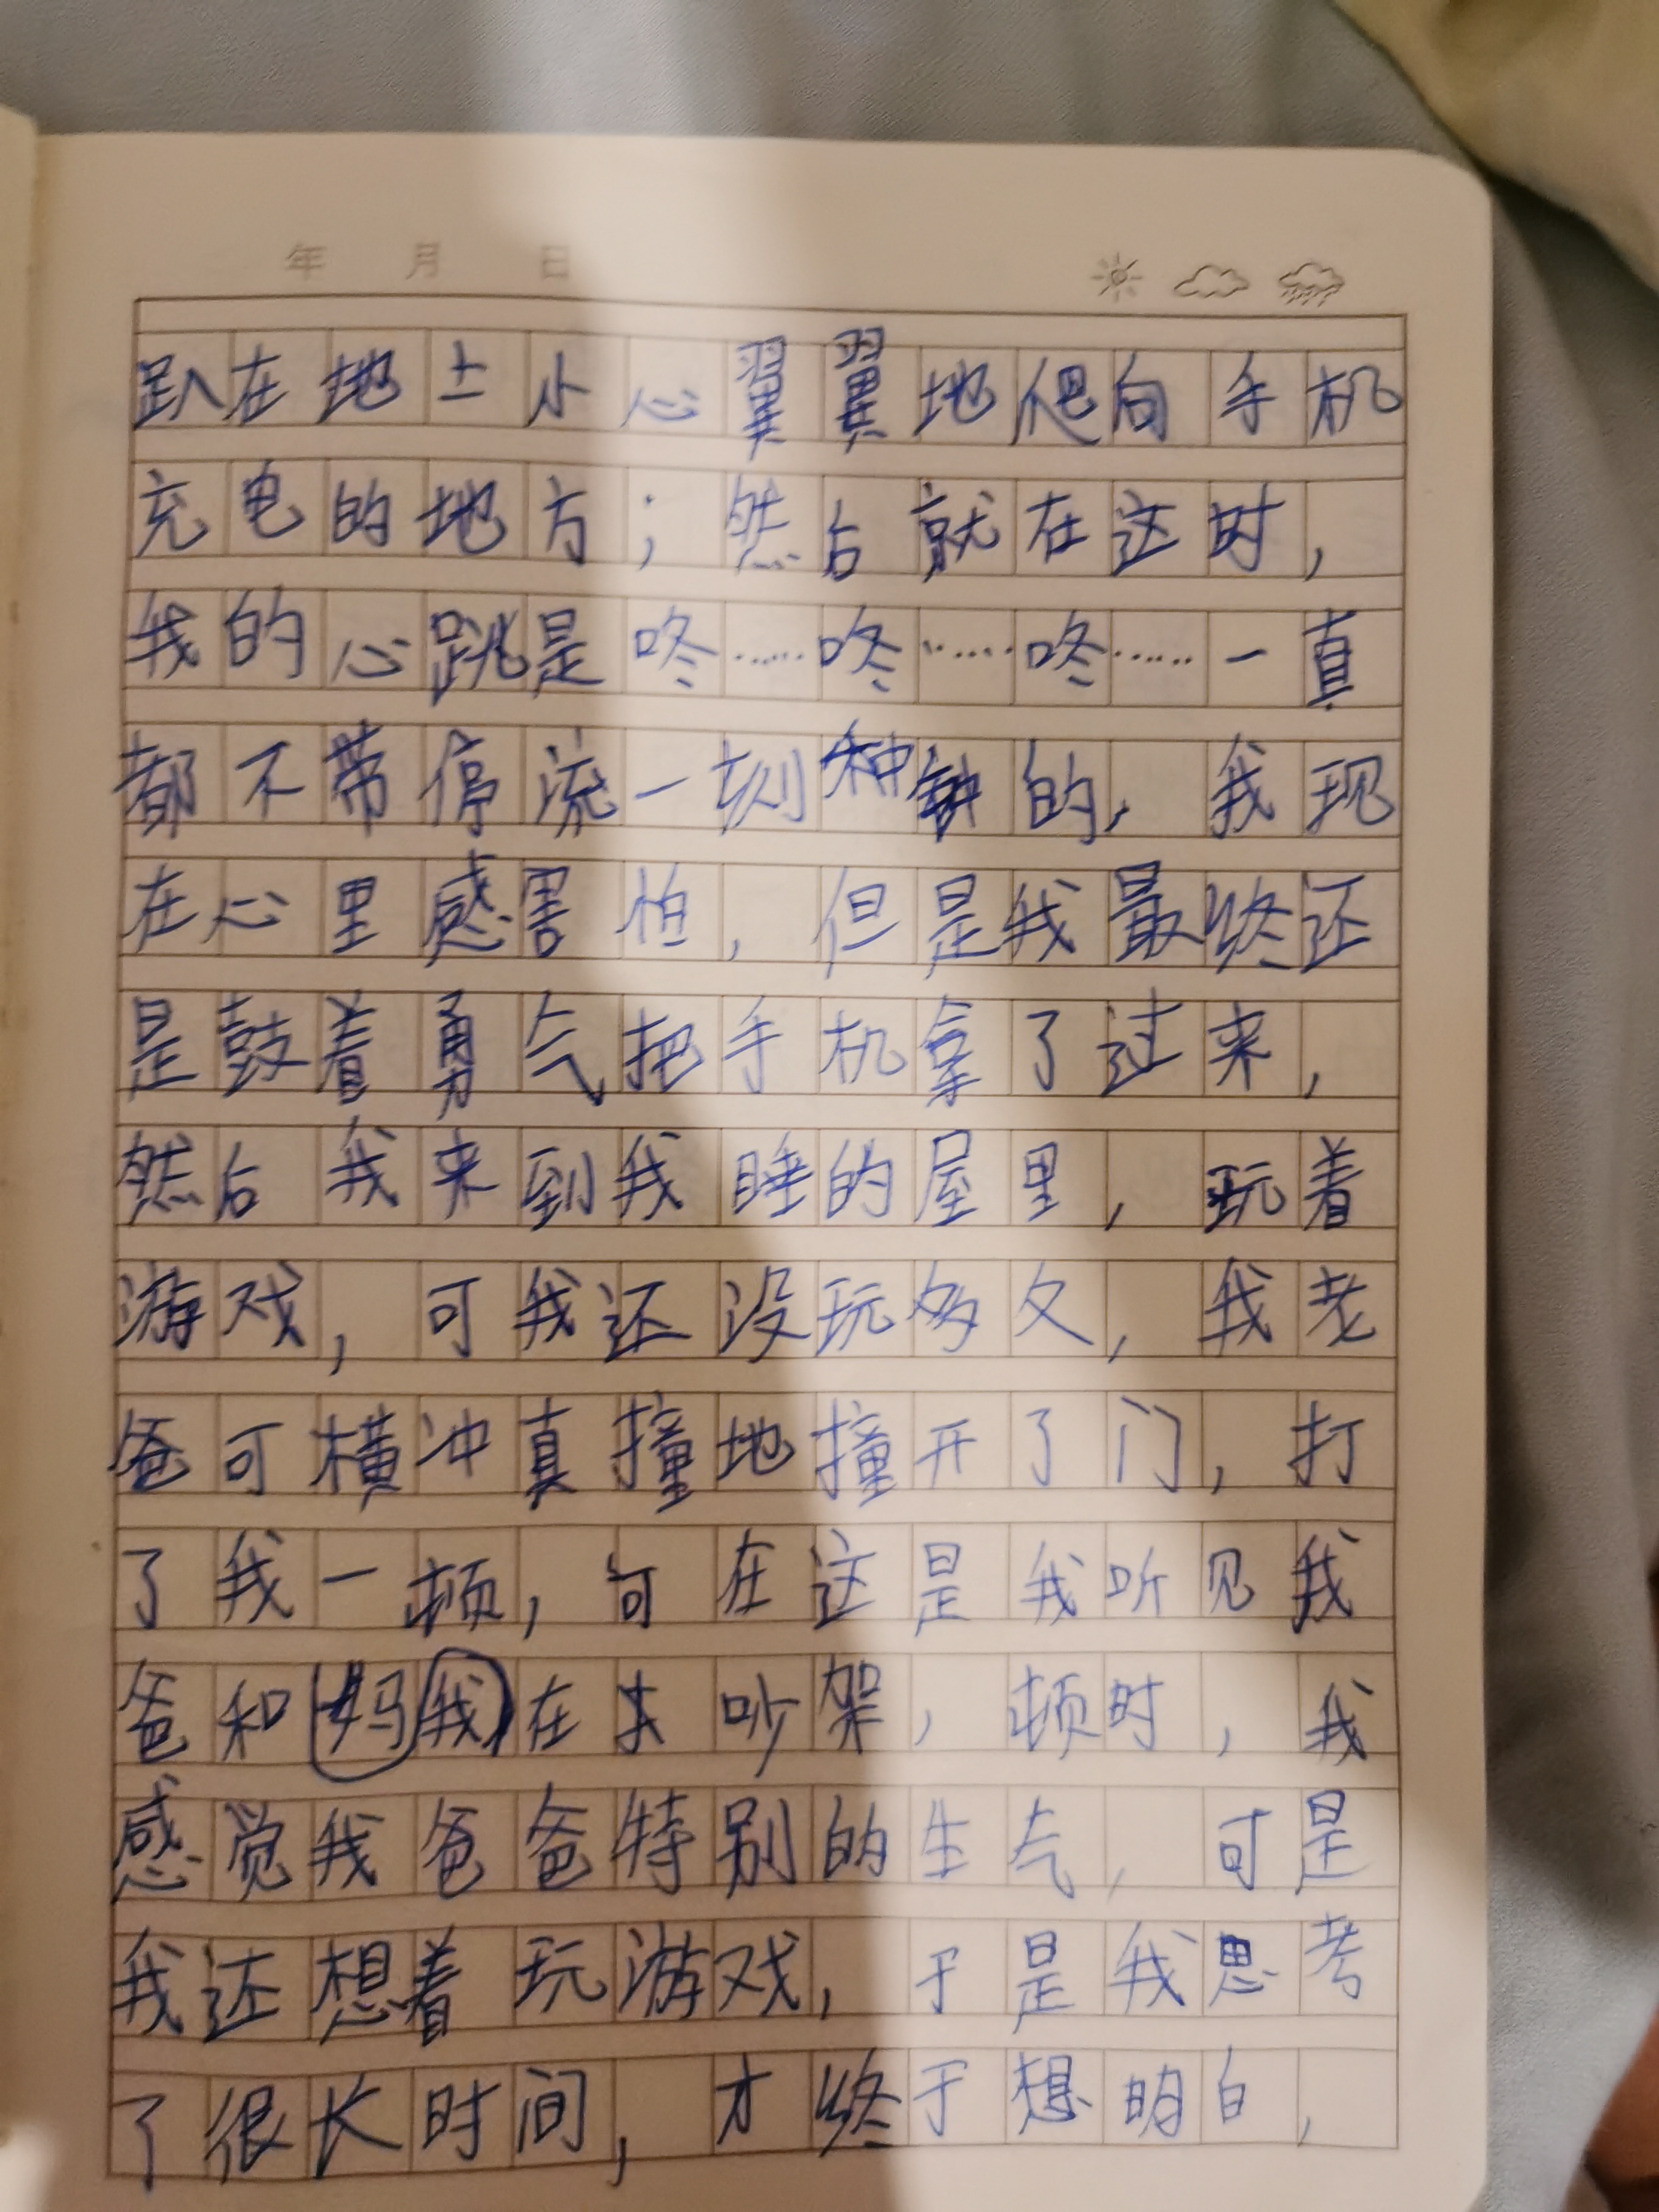 年 月 日
趴在地上小心翼翼地爬向手机
充电的地方；然后就在这时，
我的心跳是咚……咚……咚……一真
都不带停流一刻种钟的，我现
在心里感害怕，但是我最终还
是鼓着勇气把手机拿了过来，
然后我来到我睡的屋里，玩着
游戏，可我还没玩多久，我老
爸可横冲真撞地撞开了门，打
了我一顿，可在这是我听见我
爸和妈我在吵架，顿时，我
感觉我爸爸特别的生气，可是
我还想着玩游戏，于是我思考
了很长时间，才终于想明白，